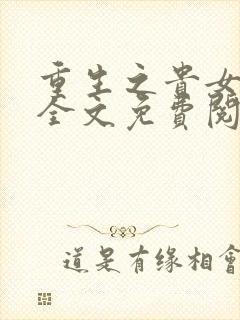 重生之貴女
全文免費閱
道是有缘相會